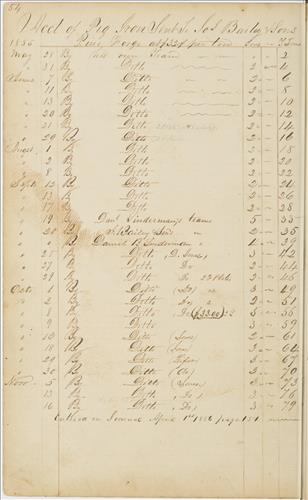 54
Acct of Pig Iron Sent to Jos Bailey & Sons
1856 Pine Forge at per Ton Tons Tons
May 28 By our own Team 2 2
" 31 By Ditto 2 4
June 7 By Ditto 2 6
" 11 By Ditto 2 8
" 13 By Ditto 2 10
" 20 By Ditto 2 12
" 21 By Ditto 2 14
" 29 By Ditto 2 16
1 By Ditto 2 18
" 2 By Ditto 2 20
" 8 By Ditto 2 22
Sept 12 By Ditto 2 24
" 13 By Ditto 2 26
" 17 By Ditto 2 28
" 19 By Danl Lindermans teams 5 33
" 20 By 2 35
" " By Daniel B Linderman 4 39
" 25 By Ditto 3 42
" 27 By Ditto Do 2 44
" 29 By Ditto Do 2 46
Octo 1 By Ditto (Do) 3 49
" 2 By Ditto Do 2 51
" 8 By Ditto Do ($33.00) 5 56
" 9 By Ditto 3 59
" 13 By Ditto (Sons) 2 61
" 18 By Ditto (Son) 3 64
" 29 By Ditto 3 67
" 30 By Ditto (Do) 3 70
Novr 5 By Ditto (Sons) 3 73
" 13 By Ditto (Do) 3 76
" 16 By Ditto (Do) 3 79
Entered in Journal April 1st page 151